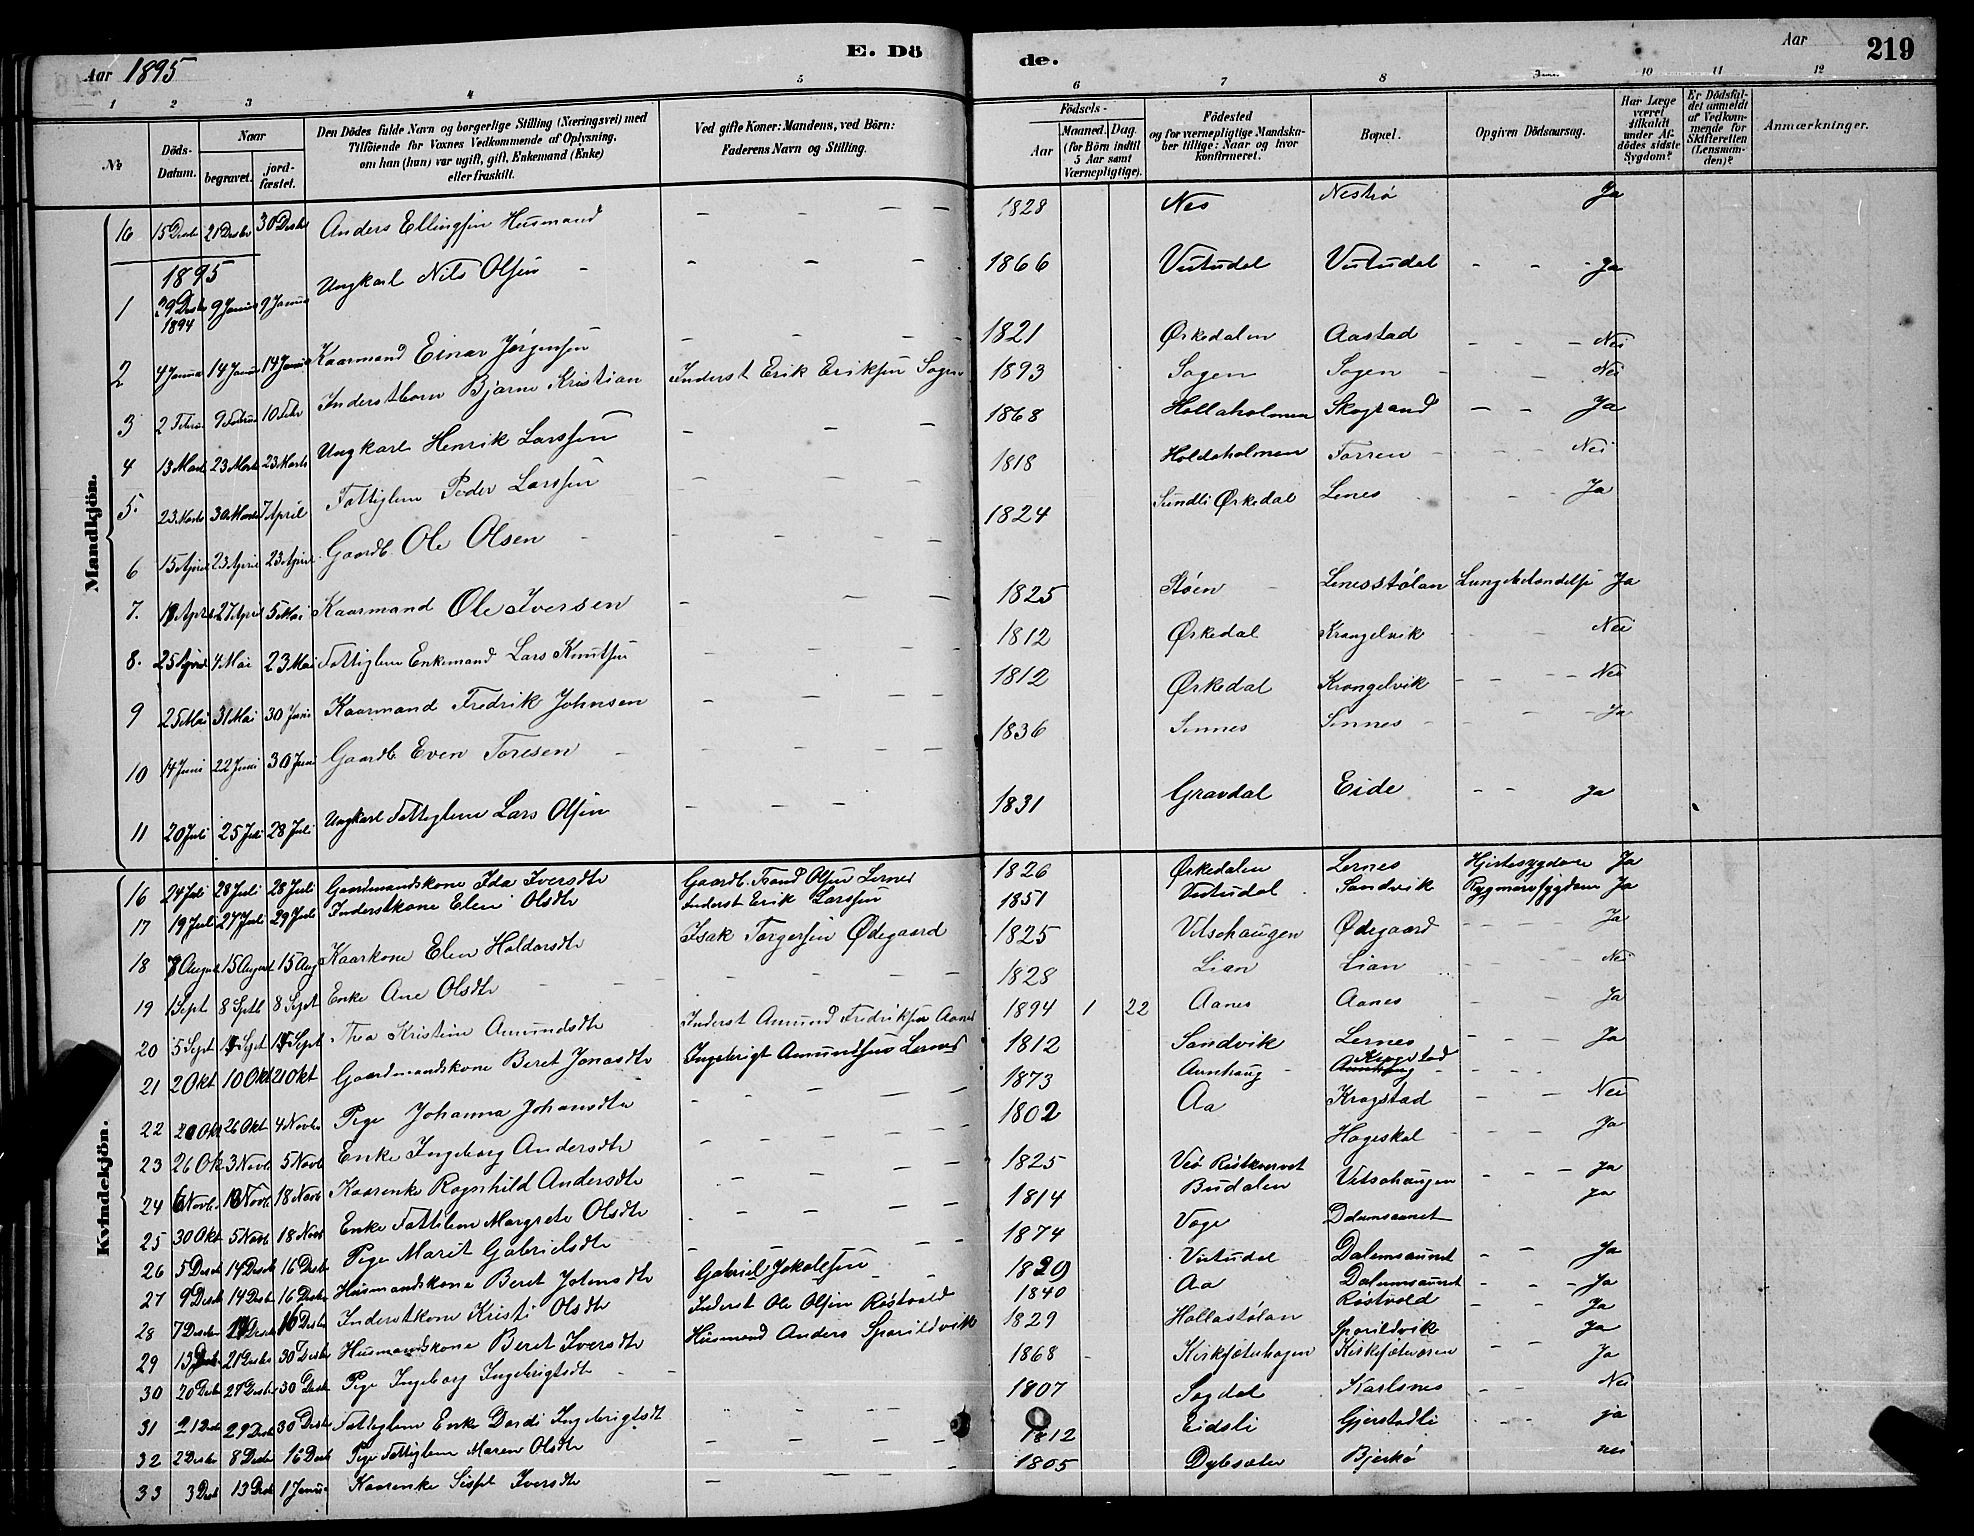 Aar 1895
E. Dö
de.
Aar
219
1 2 3 4 5 6 7 8 10 11 12
№
Döds-Datum.
Naar
begravet.
jord-fæstet.
Den Dödes fulde Navn og borgerlige Stilling (Næringsvei) med Tilföiende for Voxnes Vedkommende af Oplysning, om han (hun) var ugift, gift, Enkemand (Enke) eller fraskilt.
Ved gifte Koner: Mandens, ved Börn: Faderens Navn og Stilling.
Födsels-
Aar
Maaned. Dag.
(for Börn indtil 5 Aar samt Værnepligtige).
Födested og for værnepligtige Mandskaber tillige: Naar og hvor konfirmeret.
Bopæl.
Opgiven Dödsaarsag.
Har Læge været tilkaldt under Afdödes sidste Sygdom?
Er Dödsfaldet anmeldt af Vedkommende for Skifteretten (Lensmanden)?
Anmærkninger.
Mandkjön.
16 15 Decbr 21 Decbr 30 Decbr Anders Ellingsen Husmand — — — 1828 Nes Nestrø Ja
1895
1 29 Decbr 1894 9 Januar 9 Januar Ungkarl Nils Olsen — — — 1866 Vutudal Vutudal - - - Ja
2 4 Januar 14 Januar 14 Januar Kaarmand Einar Jørgensen — — — 1821 Ørkedalen Aastad - - - Nei
3 2 Febru 9 Februar 10 Febr Inderstbarn Bjarne Kristian Inderst Erik Eriksen Sagen 1893 Sagen Sagen - - Nei
4 13 Marts 23 Marts 23 Marts Ungkarl Henrik Larssen — — — 1868 Hollaholmen Skogrand - - Ja
5. 23 Marts 30 Marts 7 April Fattiglem Peder Larssen — — — 1818 Holdaholmen Farren - - - Nei
6 15 April 23 April 23 April Gaardb. Ole Olsen — — — 1824 Sundli Ørkedal Lenes - - Ja
7. 18 April 27 April 5 Mai Kaarmand Ole Iversen — — — 1825 Støen Lenesstølan Lungebetændelse Ja
8. 25 April 4 Mai 23 Mai Fattiglem Enkemand Lars Knutsen 1812 Ørkedal Krangelvik - - Nei
9 25 Mai 31 Mai 30 Juni Kaarmand Fredrik Johnsen — — — 1812 Ørkedal Krongelvik - - - Nei
10 14 Juni 22 Juni 30 Juni Gaardb. Even Toresen — — — 1836 Sinnes Sinnes - - - Ja
11 20 Juli 25 Juli 28 Juli Ungkarl Fattiglem Lars Olsen — — — 1831 Gravdal Eide - - Ja
Kvindekjön.
16 24 Juli 28 Juli 28 Juli Gaardmandskone Ida Iversdtr Gaardb. Trond Olsen Lernes 1826 Ørkedalen Lernes Hjertesygdom Ja
17 19 Juli 27 Juli 29 Juli Inderstkone Elen Olsdtr Inderst Erik Larssen 1851 Vutudal Sandvik Rygmarvsygdom Ja
18 7 August 15 August 15 Aug Kaarkone Elen Haldorsdtr Isak Torgersen Ødegaard 1825 Vitsohaugen Ødegaard - - - Ja
19 1 Sept 8 Septb 8 Sept Enke Ane Olsdtr — — — 1828 Lian Lian - - - Nei
20 5 Sept Sept Sept Thea Kristine Amundsdtr Inderst Amund Fredriksen Aanes 1894 1 22 Aanes Aanes - - - Ja
21 2 Okt 10 Okt 21 Okt Gaardmandskone Beret Jonasdtr Ingebrigt Amundsen Lernes 1812 Sandvik Lernes - - - Ja
22 20 Okt 26 Okt 4 Novbr Pige Johanna Johansdtr — — — 1873 Aunhaug Krogstad - - -
23 26 Okt 3 Novb 5 Novb Enke Ingeborg Andersdtr — — — 1802 Aa Krogstad - - - Nei
Hageskal - - Ja
24 6 Novb 10 Novb 18 Novb Kaarenke Ragnhild Andersdtr — — — 1825 Budalen Vitsohaugen - - - Ja
25 30 Okt 5 Novb 18 Novb Enke Fattilem Margrete Olsdtr — — — 1814 Vage Dalumsaunet Ja
26 5 Decb 14 Decb 16 Decbr Pige Marit Gabrielsdtr Gabriel Jakobsen 1874 Vutudal Dalemsaunet - - Ja
27 9 Decb 14 Decbr 16 Decbr Husmandskone Beret Johnsdtr 1829 Aa Dalumsaunet - - - Ja
28 7 Decbr Decbr 16 Decbr Inderstkone Kristi Olsdtr Inderst Ole Olsen Røstvold 1840 Røstvold - - Ja
29 13 Decb 21 Decbr 30 Decbr Husmandskone Beret Iversdtr Husmand Anders Sparildvik 1829 Hollastølan Sparildvik Ja
30 20 Decbr 27 Decbr 30 Decb Pige Ingeborg Ingebrigtsdtr — — 1868 Kirksæterhagen Kirksæterøren - - Ja
31 21 Decb 29 Decb 30 Decbr Fattiglem Enke Dordi Ingebrigtsdt — — 1807 Sagdal Karlsnes - - Nei
32 2 Decbr 8 Decbr 16 Decb Pige Fattiglem Maren Olsdtr — — — 1812 Eidsli Gjerstadli ja
33 3 Decb 13 Decb 1 Januar Kaarenke Sissel Iversdtr — — — 1805 Dylsæter Bjerkø nei